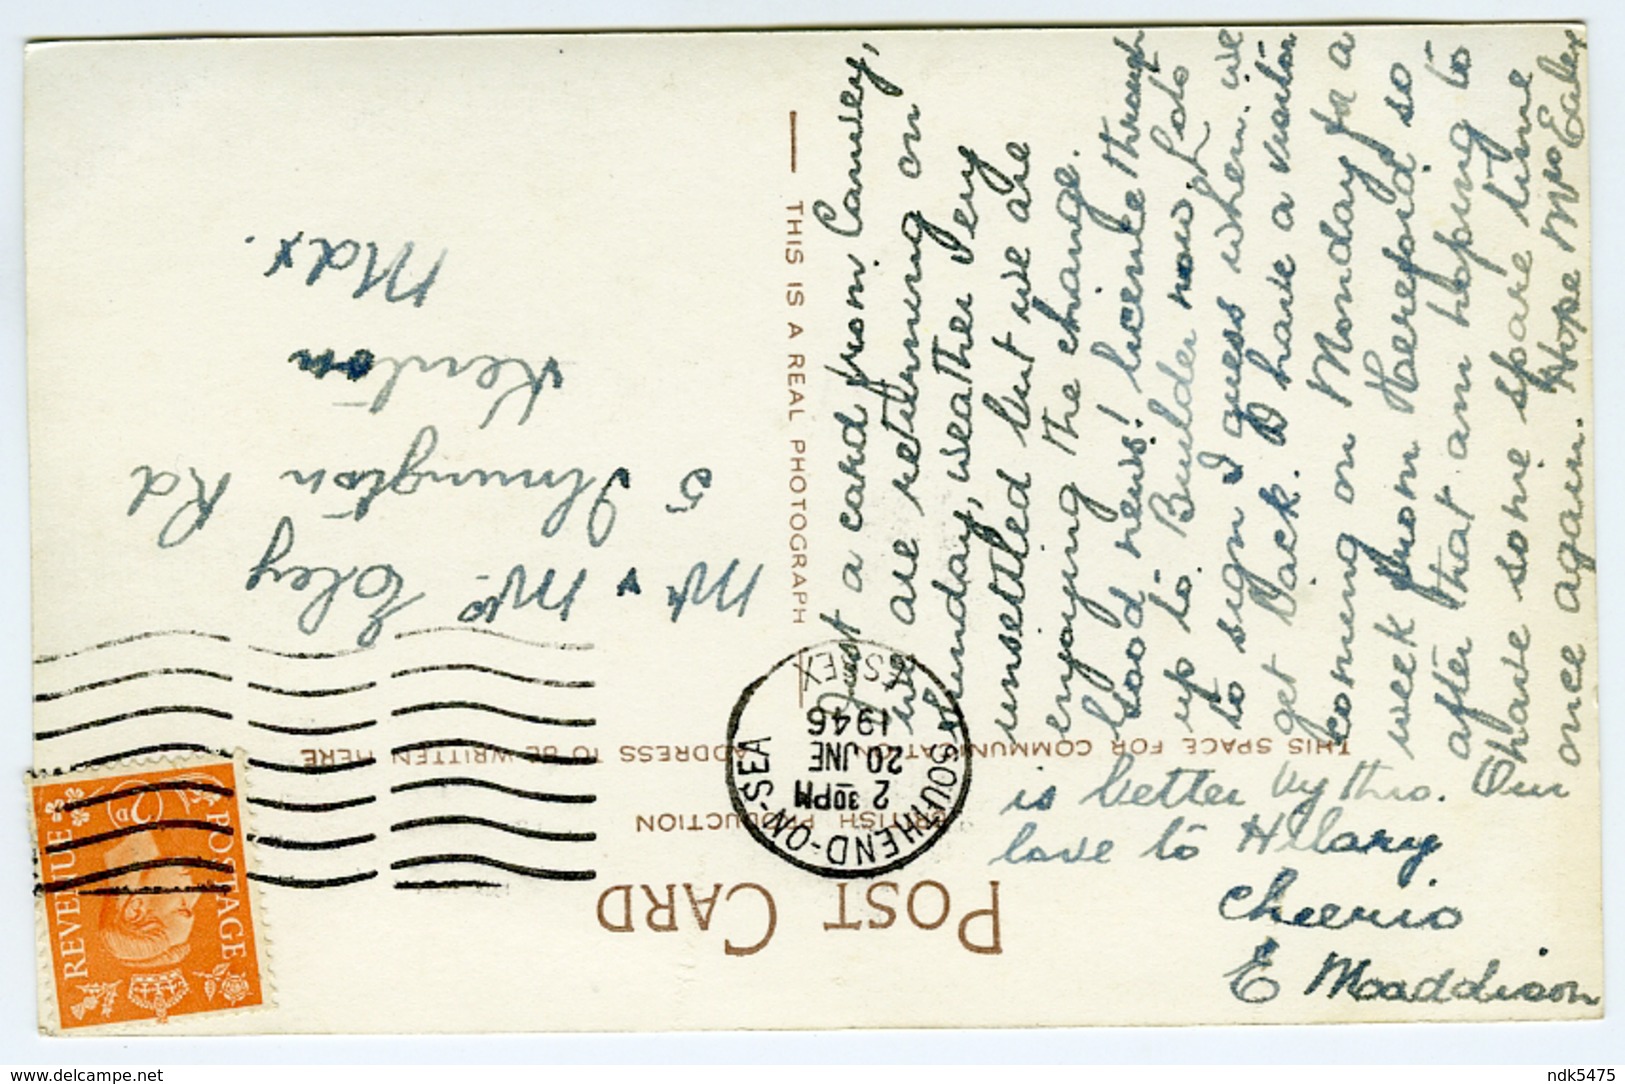 POST CARD
BRITISH PRODUCTION
THIS SPACE FOR COMMUNICATION
ADDRESS TO BE WRITTEN HERE
THIS IS A REAL PHOTOGRAPH
SOUTHEND-ON-SEA
2 30PM
20 JNE
1946
ESSEX
POSTAGE
REVENUE
2D
Mr & Mrs Eoley
5 Ilmington Rd
Kenton
Mdx.
Just a card from Canvey,
we are returning on
Sunday, weather very
unsettled but we are
enjoying the change.
Good news! licente through
up to Builder now, Lots
to sign I guess when we
get back. I have a visitor
coming on Monday for a
week from Hereford so
after that am hoping to
have some spare time
once again. Hope Mrs Ealey
is better by this. Our
love to Hilary
Cheerio
E Maaddison
delcampe.net
ndk5475